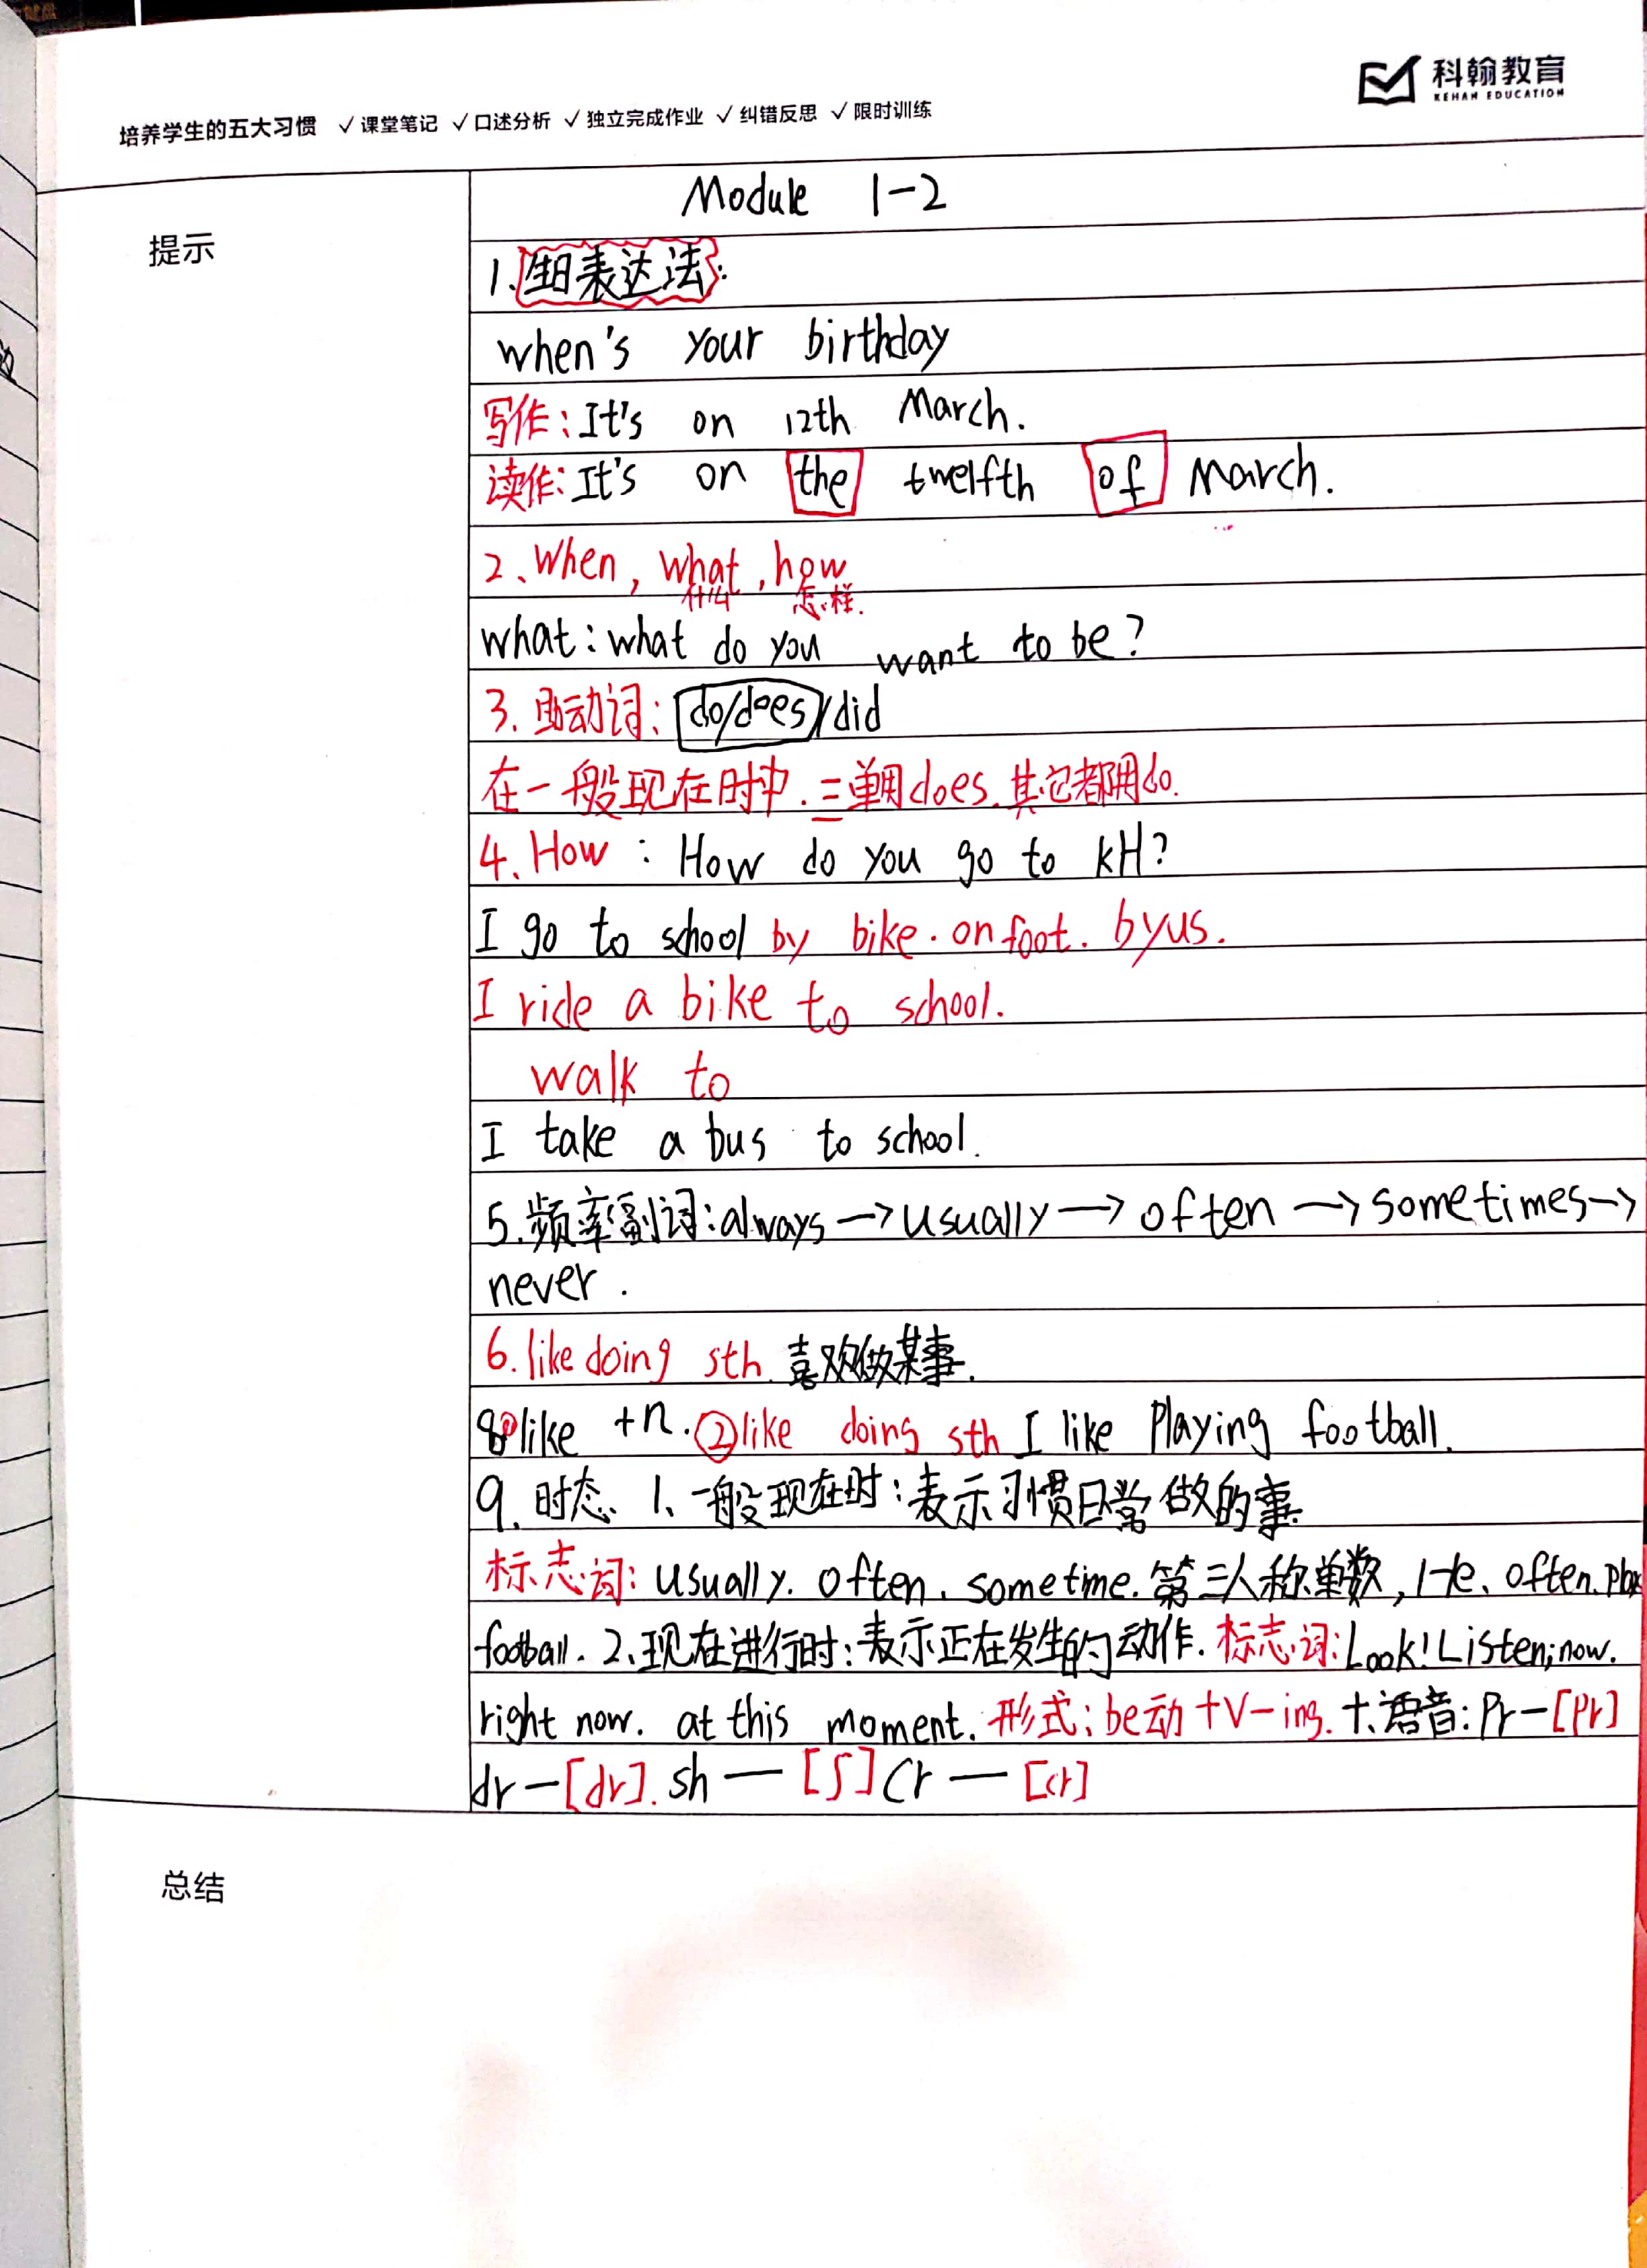 科翰教育
KEHAN EDUCATION
培养学生的五大习惯 ✓课堂笔记 ✓口述分析 ✓独立完成作业 ✓纠错反思 ✓限时训练
提示
Module 1-2
1、生日表达法:
when's your birthday
写作: It's on 12th March.
读作: It's on the twelfth of March.
2、When, what, how
什么 怎样.
what: what do you want to be?
3. 助动词: do/does/did
在一般现在时中.三单用does.其它都用do.
4. How : How do you go to kH?
I go to school by bike. on foot. byus.
I ride a bike to school.
walk to
I take a bus to school.
5.频率副词: always → usually → often → sometimes →
never.
6. like doing sth. 喜欢做某事.
8①like +n. ②like doing sth I like Playing football.
9. 时态、1、一般现在时:表示习惯日常做的事
标志词: usually. often. sometime. 第三人称单数, He. often.
football. 2、现在进行时:表示正在发生的动作. 标志词: Look! Listen; now.
right now. at this moment. 形式: be动+V-ing. 十、语音: Pr-[pr]
dr-[dr]. sh — [ʃ] Cr — [cr]
总结